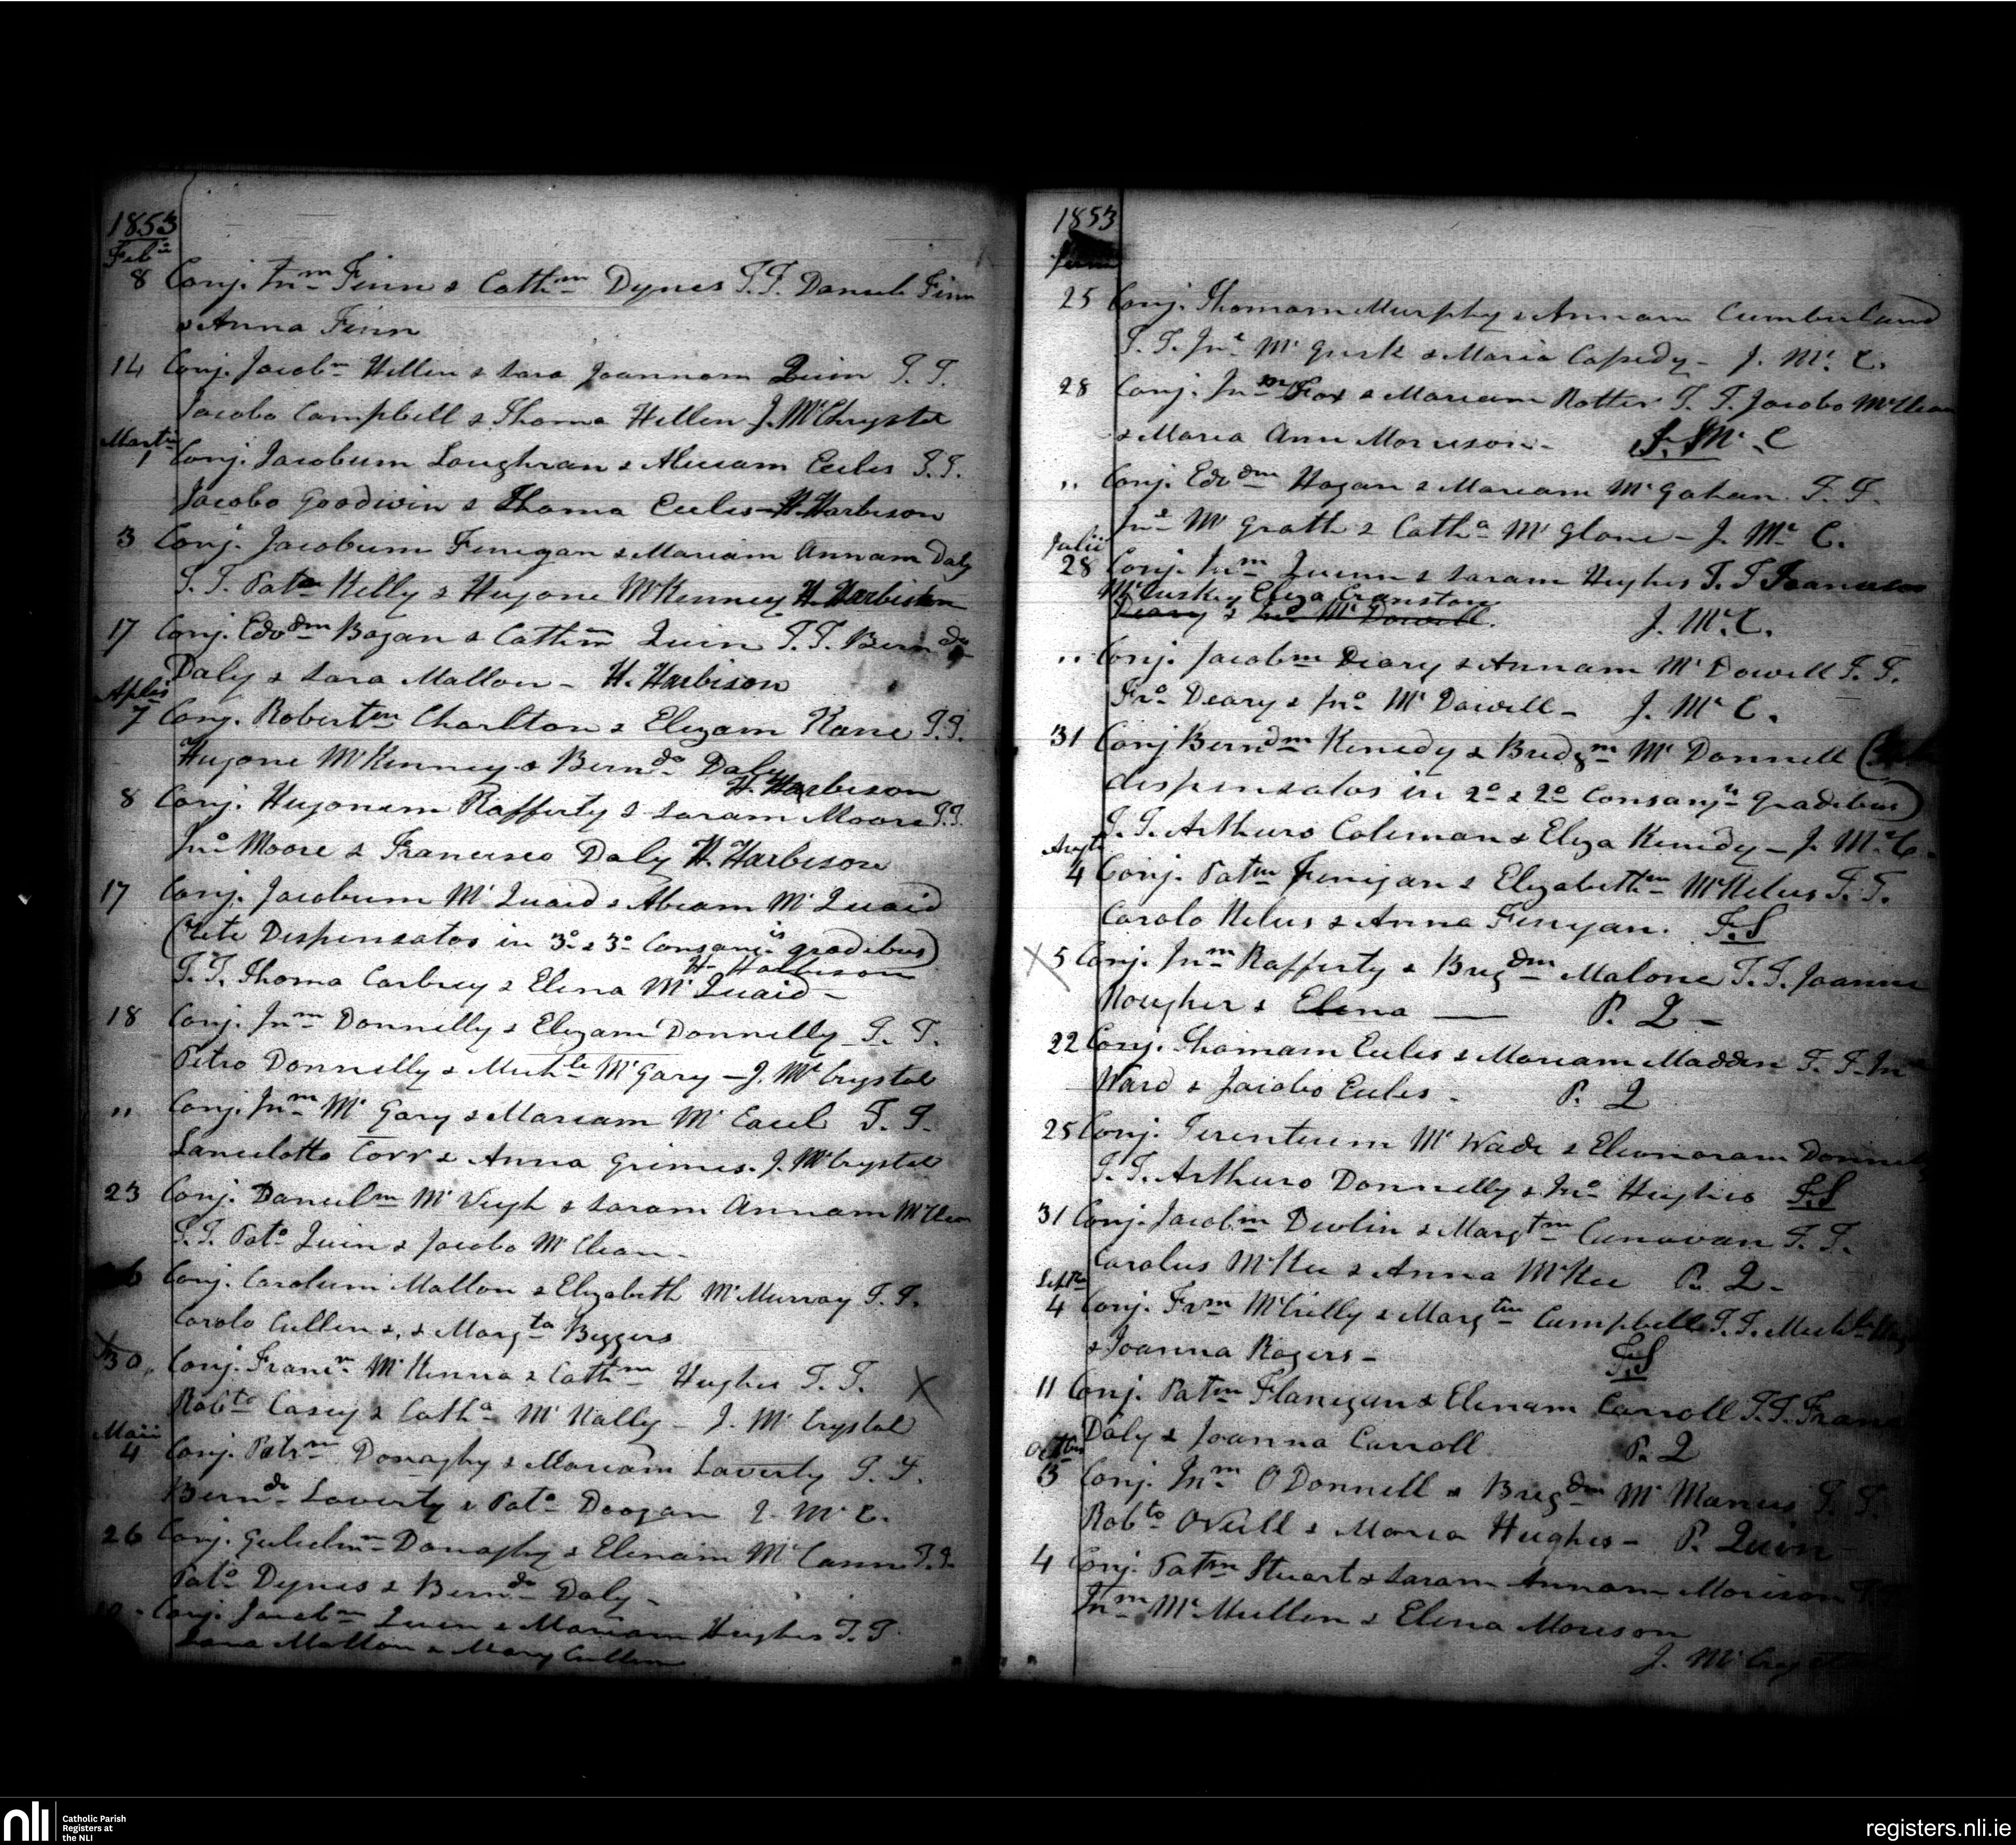 1853
Feb
8 Conj. Jnm Finn & Cathm Dynes T.T. Daniele Finn
& Anna Finn
14 Conj. Jacobm Hillen & Sara Joannam Quin T.T.
Jacobo Campbell & Thoma Hillen J. McChrystal
Martii
1 Conj. Jacobum Loughran & Aliciam Eeles T.T.
Jacobo Goodwin & Thoma Eeles - H. Harbison
3 Conj. Jacobum Finigan & Mariam Annam Daly
T.T. Kelly & Hugone McKenney H. Harbison
17 Conj. Edvdm Bogan & Cathm Quin T.T. Bernda
Daly & Sara Mallon - H. Harbison
Aplis
7 Conj. Robertm Charlton & Elizam Kane T.T.
Hugone McKenney & Berndo Daly
H. Harbison
8 Conj. Hugonem Rafferty & Saram Moore T.T.
Jno Moore & Francisco Daly H. Harbison
17 Conj. Jacobum Mc Quaid & Mc Quaid
(Rite Dispensatos in 3o & 3o Consangis gradibus)
H. Harbison
T.T. Thoma Carbrey & Elena Mc Quaid -
18 Conj. Jnm Donnelly & Elizam Donnelly T.T.
Petro Donnelly & Michle McGary - J. McCrystal
" Conj. Jnm Mc Gary & Mariam Mc T.T.
Lancelotto Corr & Anna Grimes. J. McCrystal
23 Conj. Danielm Mc Veigh & Saram Annam
T.T. Pato Quin & Jacobo McClean -
Conj. Carolum Mallon & Elizabeth McMurray T.T.
Carolo Cullen &, & Margta Biggers
X 30 Conj. Mc Kenna & Cathm Hughes T.T. X
Robto Casey & Catha McNally - J. McCrystal
Maii
4 Conj. Patm Donaghy & Mariam Laverty T.T.
Berndo Laverty & Pato Doogan J. Mc C.
26 Conj. Gulielm Donaghy & Elenam McCann T.T.
Pato Dynes & Berndo Daly -
Conj. Jacobm Quin & Mariam Hughes T.T.
Sara Mallon & Mary Cullen
1853
25 Conj. Thomam Murphy & Annam Cumberland
T.T. Jne Mc Gurk & Maria Cassidy - J. Mc. C.
28 Conj. Jnm Fox & Mariam Rotter T.T. Jacobo
& Maria Ann Morrison - J. Mc. C
" Conj. Edvdm Hagan & Mariam McGahan T.T.
Jne Mc Grath & Catha McGlone - J. Mc C.
Julii
28 Conj. Jnm Quinn & Saram Hughes T.T.
McCuskey Eliza Cranston
Deary & Jno Mc Dowell. J. Mc. C.
" Conj. Jacobm Deary & Annam McDowell T.T.
Fro Deary & Jno McDowell - J. Mc C.
31 Conj Berndm Kenedy & Bridgm McDonnell (
dispensatos in 2o & 2o Consangis gradibus)
T.T. Arthuro Coleman & Eliza Kenedy - J. Mc. C.
Augt
4 Conj. Patm Finigan & Elizabethm T.T.
Carolo & Anna Finigan. F.S
X 5 Conj. Jnm Rafferty & Brigdm Malone T.T. Joanne
& Elena — P. Q -
22 Conj. Thomam Eeles & Mariam Madden T.T. Jn
Ward & Jacobo Eeles - P. Q
25 Conj. Terentium McWade & Eleonoram Donnelly
T.T. Arthuro Donnelly & Jno Hughes F.S
31 Conj. Jacobm Devlin & Margtm Canavan T.T.
Carolus McKee & Anna McKee P. Q -
Septr
4 Conj. Frm McCrilly & Margtm Campbell T.T.
& Joanna Rogers - F.S
11 Conj. Patm Flanigan & Elenam Carroll T.T.
Daly & Joanna Carroll P. Q
Octbris
3 Conj. Jnm O Donnell & Brigdm McManus T.T.
Robto ONeill & Maria Hughes - P. Quin
4 Conj. Patm Stuart & Saram Annam Morison
Jnm Mc Mullen & Elena Morison
J. McCrystal
nli
Catholic Parish
Registers at
the NLI
registers.nli.ie